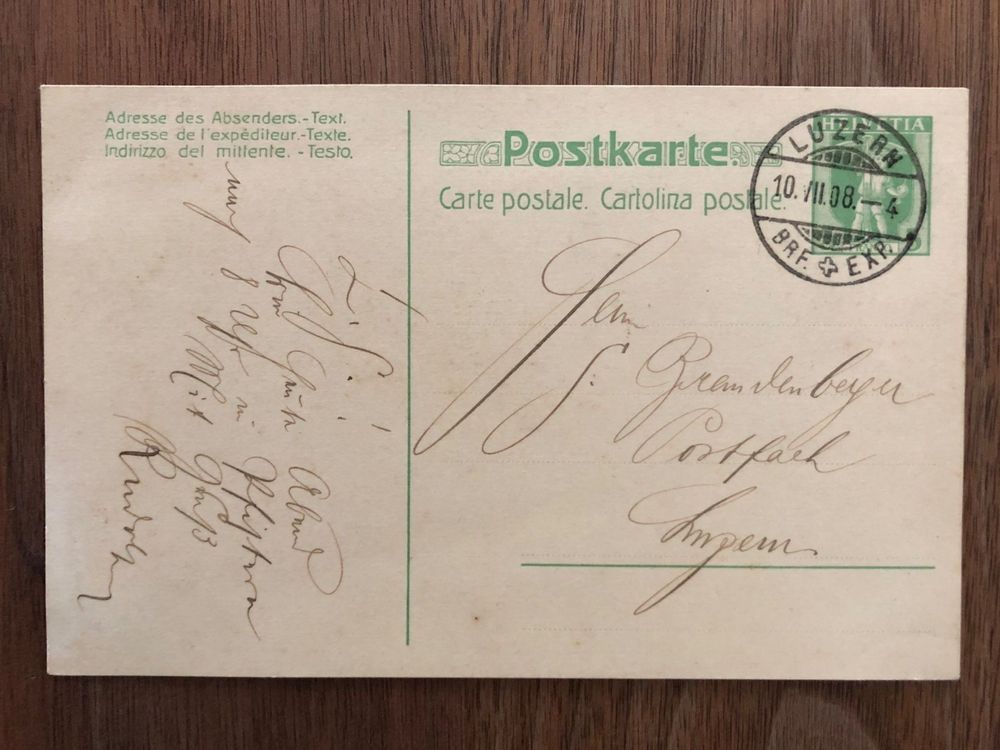 Adresse des Absenders.-Text.
Adresse de l'expéditeur.-Texte.
Indirizzo del mittente. - Testo.
Postkarte
Carte postale. Cartolina postale.
HELVETIA
LUZERN
10. VII. 08. — 4
BRF. EXP.
Herrn
S. Brandenberger
Postfach
Luzern
L. S.!
Abend
8 Uhr
Mit Gruß
Rudolf